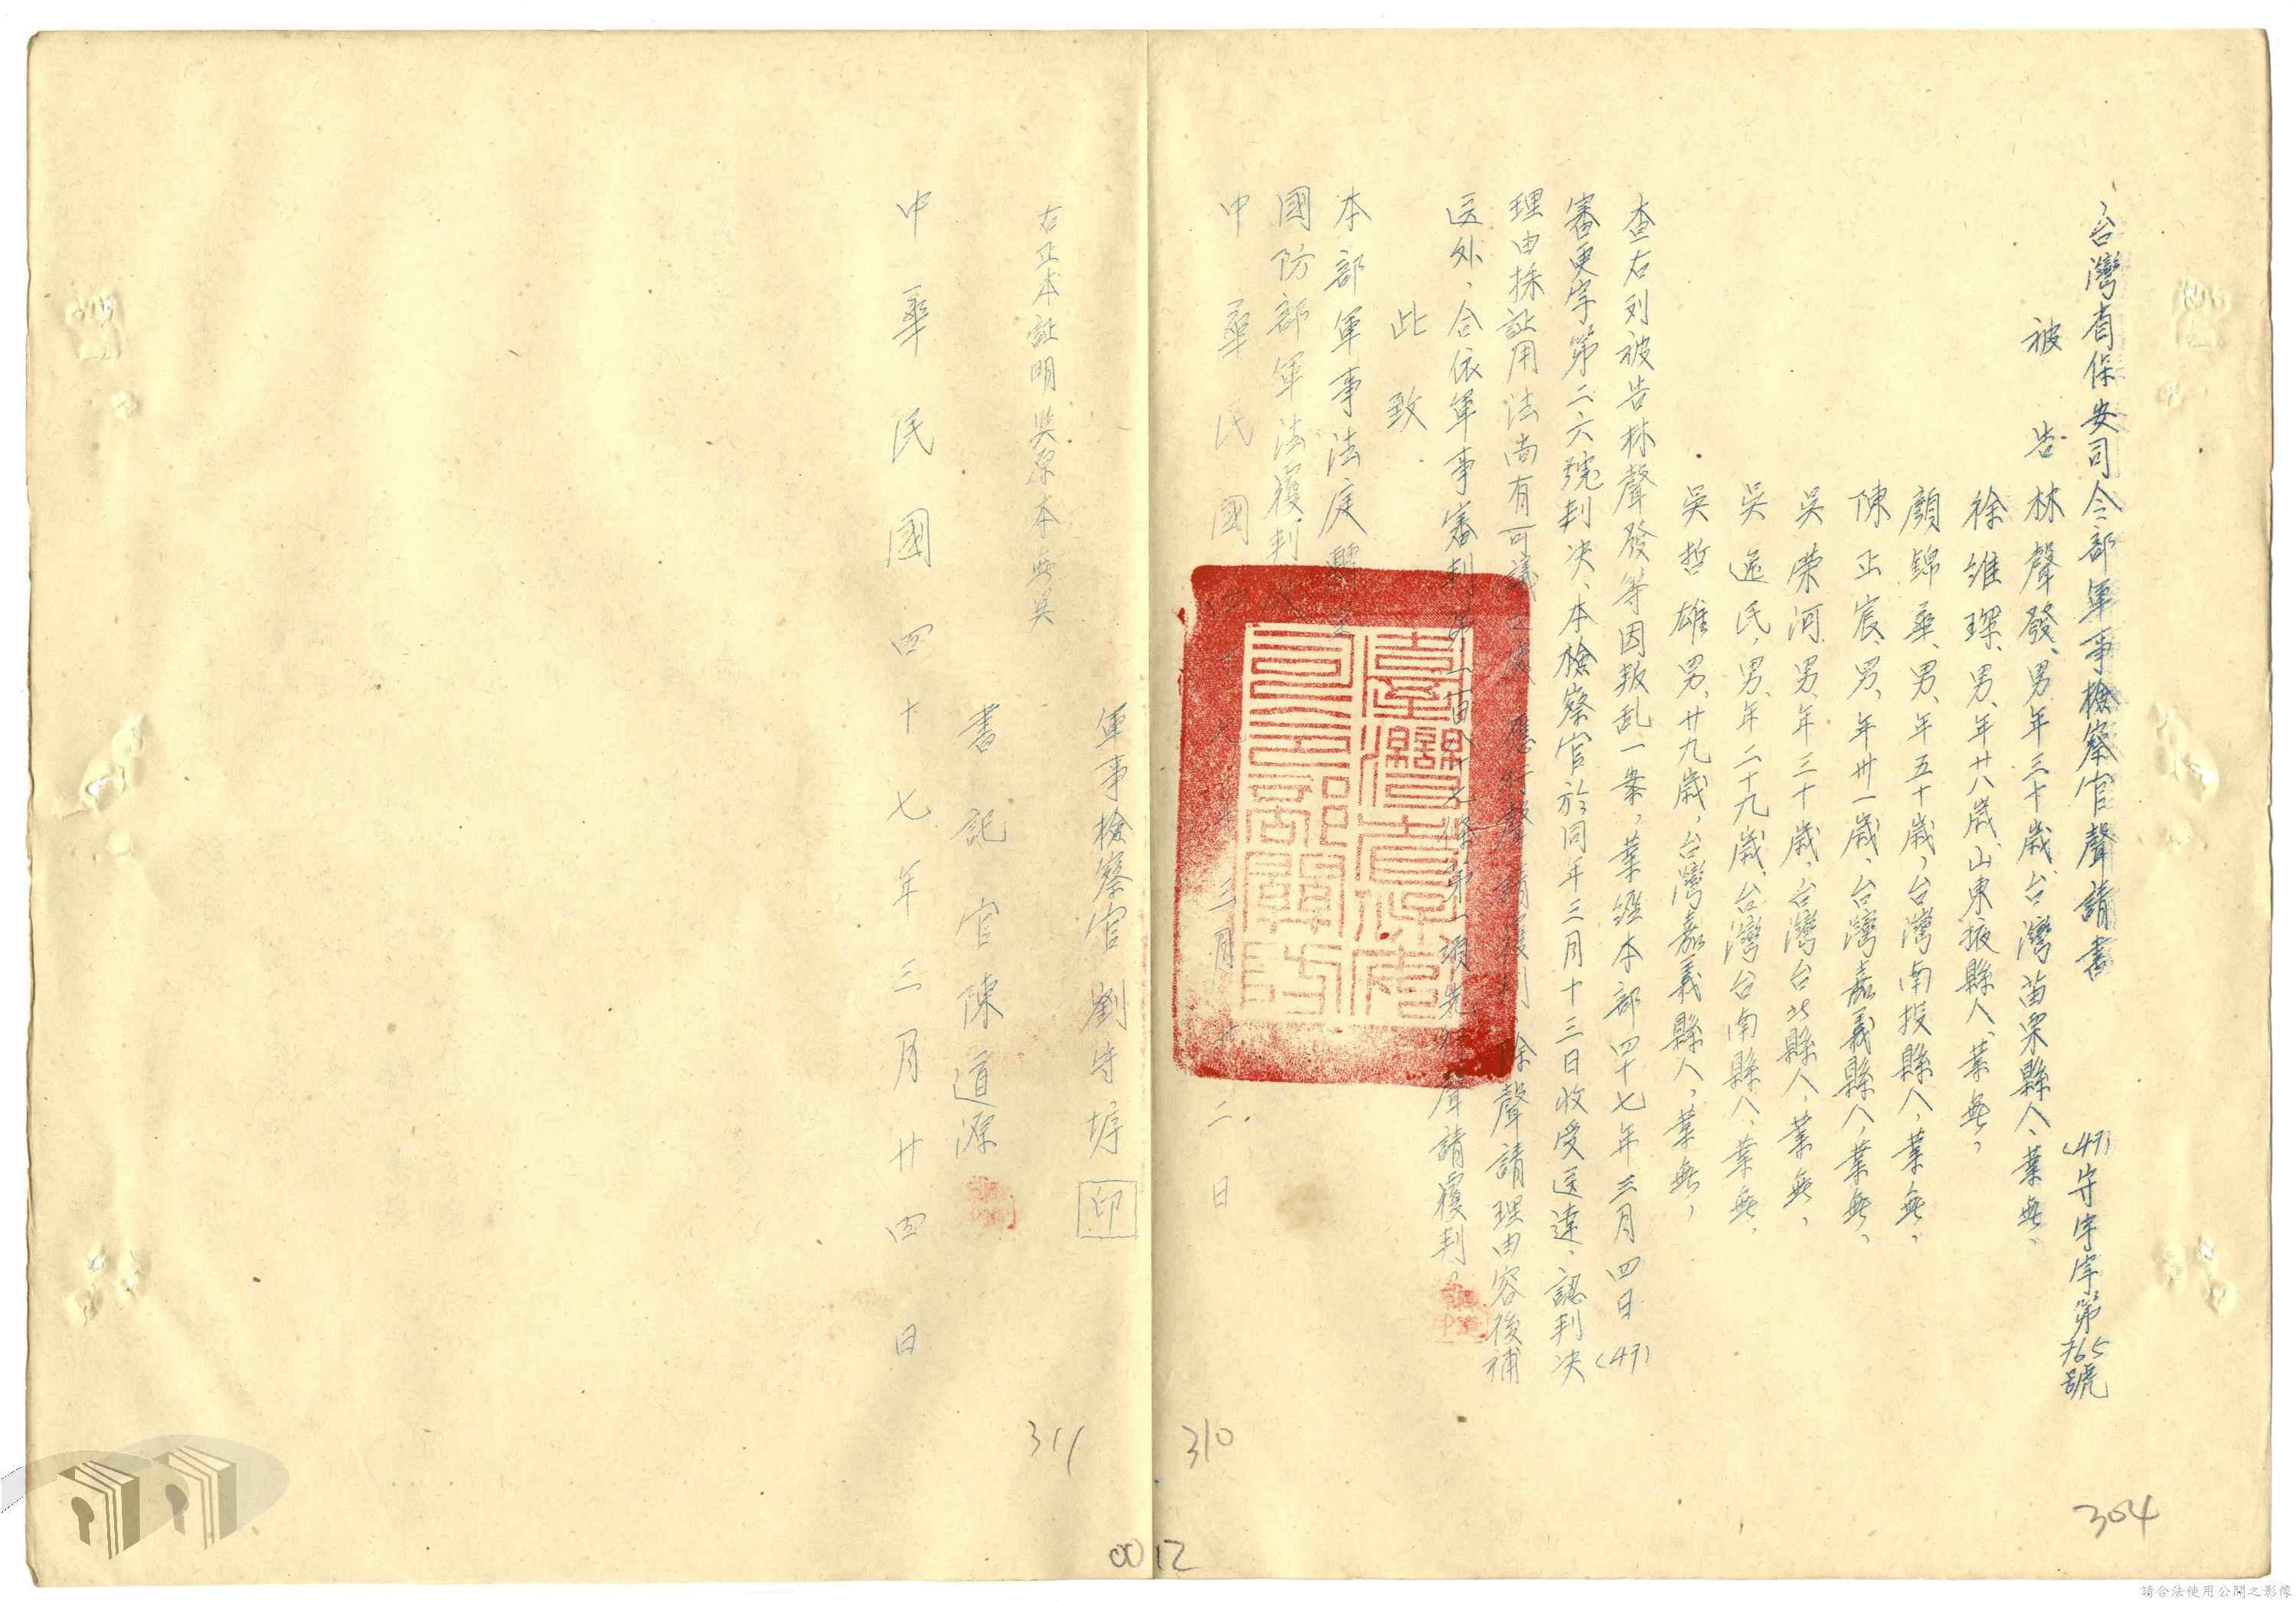 台灣省保安司令部軍事檢察官聲請書
(47)守字字第765號
被告 林聲發、男、年三十歲、台灣苗栗縣人、業無、
徐維琛、男、年廿八歲、山東掖縣人、業無、
顏錦華、男、年五十歲、台灣南投縣人、業無、
陳正宸、男、年卅一歲、台灣嘉義縣人、業無、
吳榮河、男、年三十歲、台灣台北縣人、業無、
吳逸民、男、年二十九歲、台灣台南縣人、業無、
吳哲雄、男、廿九歲、台灣嘉義縣人、業無、
查右列被告林聲發等因叛乱一案，業經本部四十七年三月四日(47)
審更字第二六號判决、本檢察官於同年三月十三日收受送達，認判决
理由採証用法尚有可議之處，應行聲請覆判，除聲請理由容後補
送外，合依軍事審判法第一百八十七條第一項先行聲請覆判。
此致
本部軍事法庭
國防部軍法覆判
中華民國四十七年三月廿二日
軍事檢察官劉守
印
右正本証明與原本無異
書記官陳道源
中華民國四十七年三月廿四日
臺灣省保安司令部關防
304
310
311
0012
請合法使用公開之影像